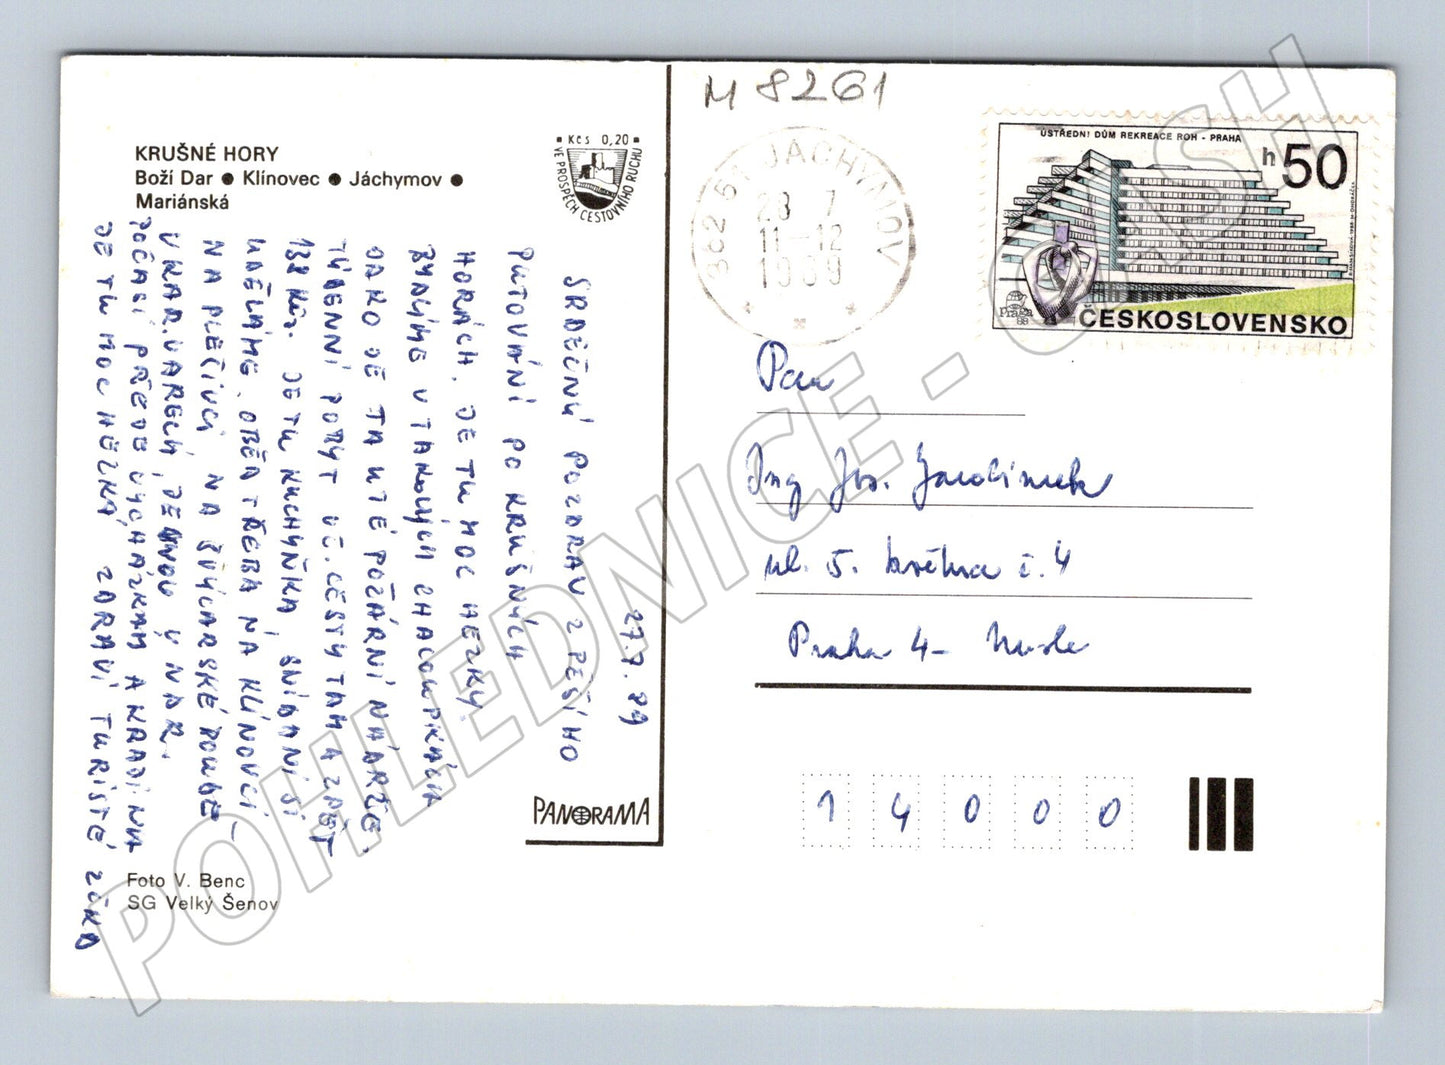 KRUŠNÉ HORY
Boží Dar ● Klínovec ● Jáchymov ●
Mariánská
Kčs 0,20
VE PROSPĚCH CESTOVNÍHO RUCHU
27.7.89
SRDEČNÝ POZDRAV Z PĚŠÍHO
PUTOVÁNÍ PO KRUŠNÝCH
HORÁCH. JE TU MOC HEZKY
BYDLÍME V TAKOVÝCH CHALOUPKÁCH
JAKO JE TA U TÉ POŽÁRNÍ NÁDRŽE.
TÝDENNÍ POBYT VČ. CESTY TAM A ZPĚT
138 Kčs. JE TU KUCHYŇKA, SNÍDANÍ SI
UDĚLÁME. OBĚD TŘEBA NA KLÍNOVCI
NA PLEČIVCI, NA ŠVÝCARSKÉ BOUDĚ -
V KAR. VARECH, JEDNOU V NDR.
POČASÍ PŘEJE VYCHÁZKÁM A
JE TU MOC HEZKÁ ZDRAVÍ TURISTÉ
PANORAMA
Foto V. Benc
SG Velký Šenov
M 8261
362 51 JÁCHYMOV
28 7
11-12
1989
ÚSTŘEDNÍ DŮM REKREACE ROH - PRAHA
h 50
Praga 88
ČESKOSLOVENSKO
Pan
Ing Jos. Jarolímek
ul. 5. května č. 4
Praha 4 - Nusle
1 4 0 0 0
POHLEDNICE - CASH